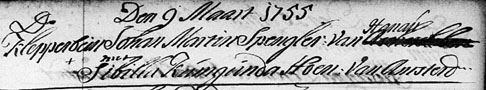 Den 9 Maart 1755
D.
Kleppenbein Johan Martin Spengler. Van Hanau
met
+ Sibilla Kunigunda Hoen. Van Ansterd